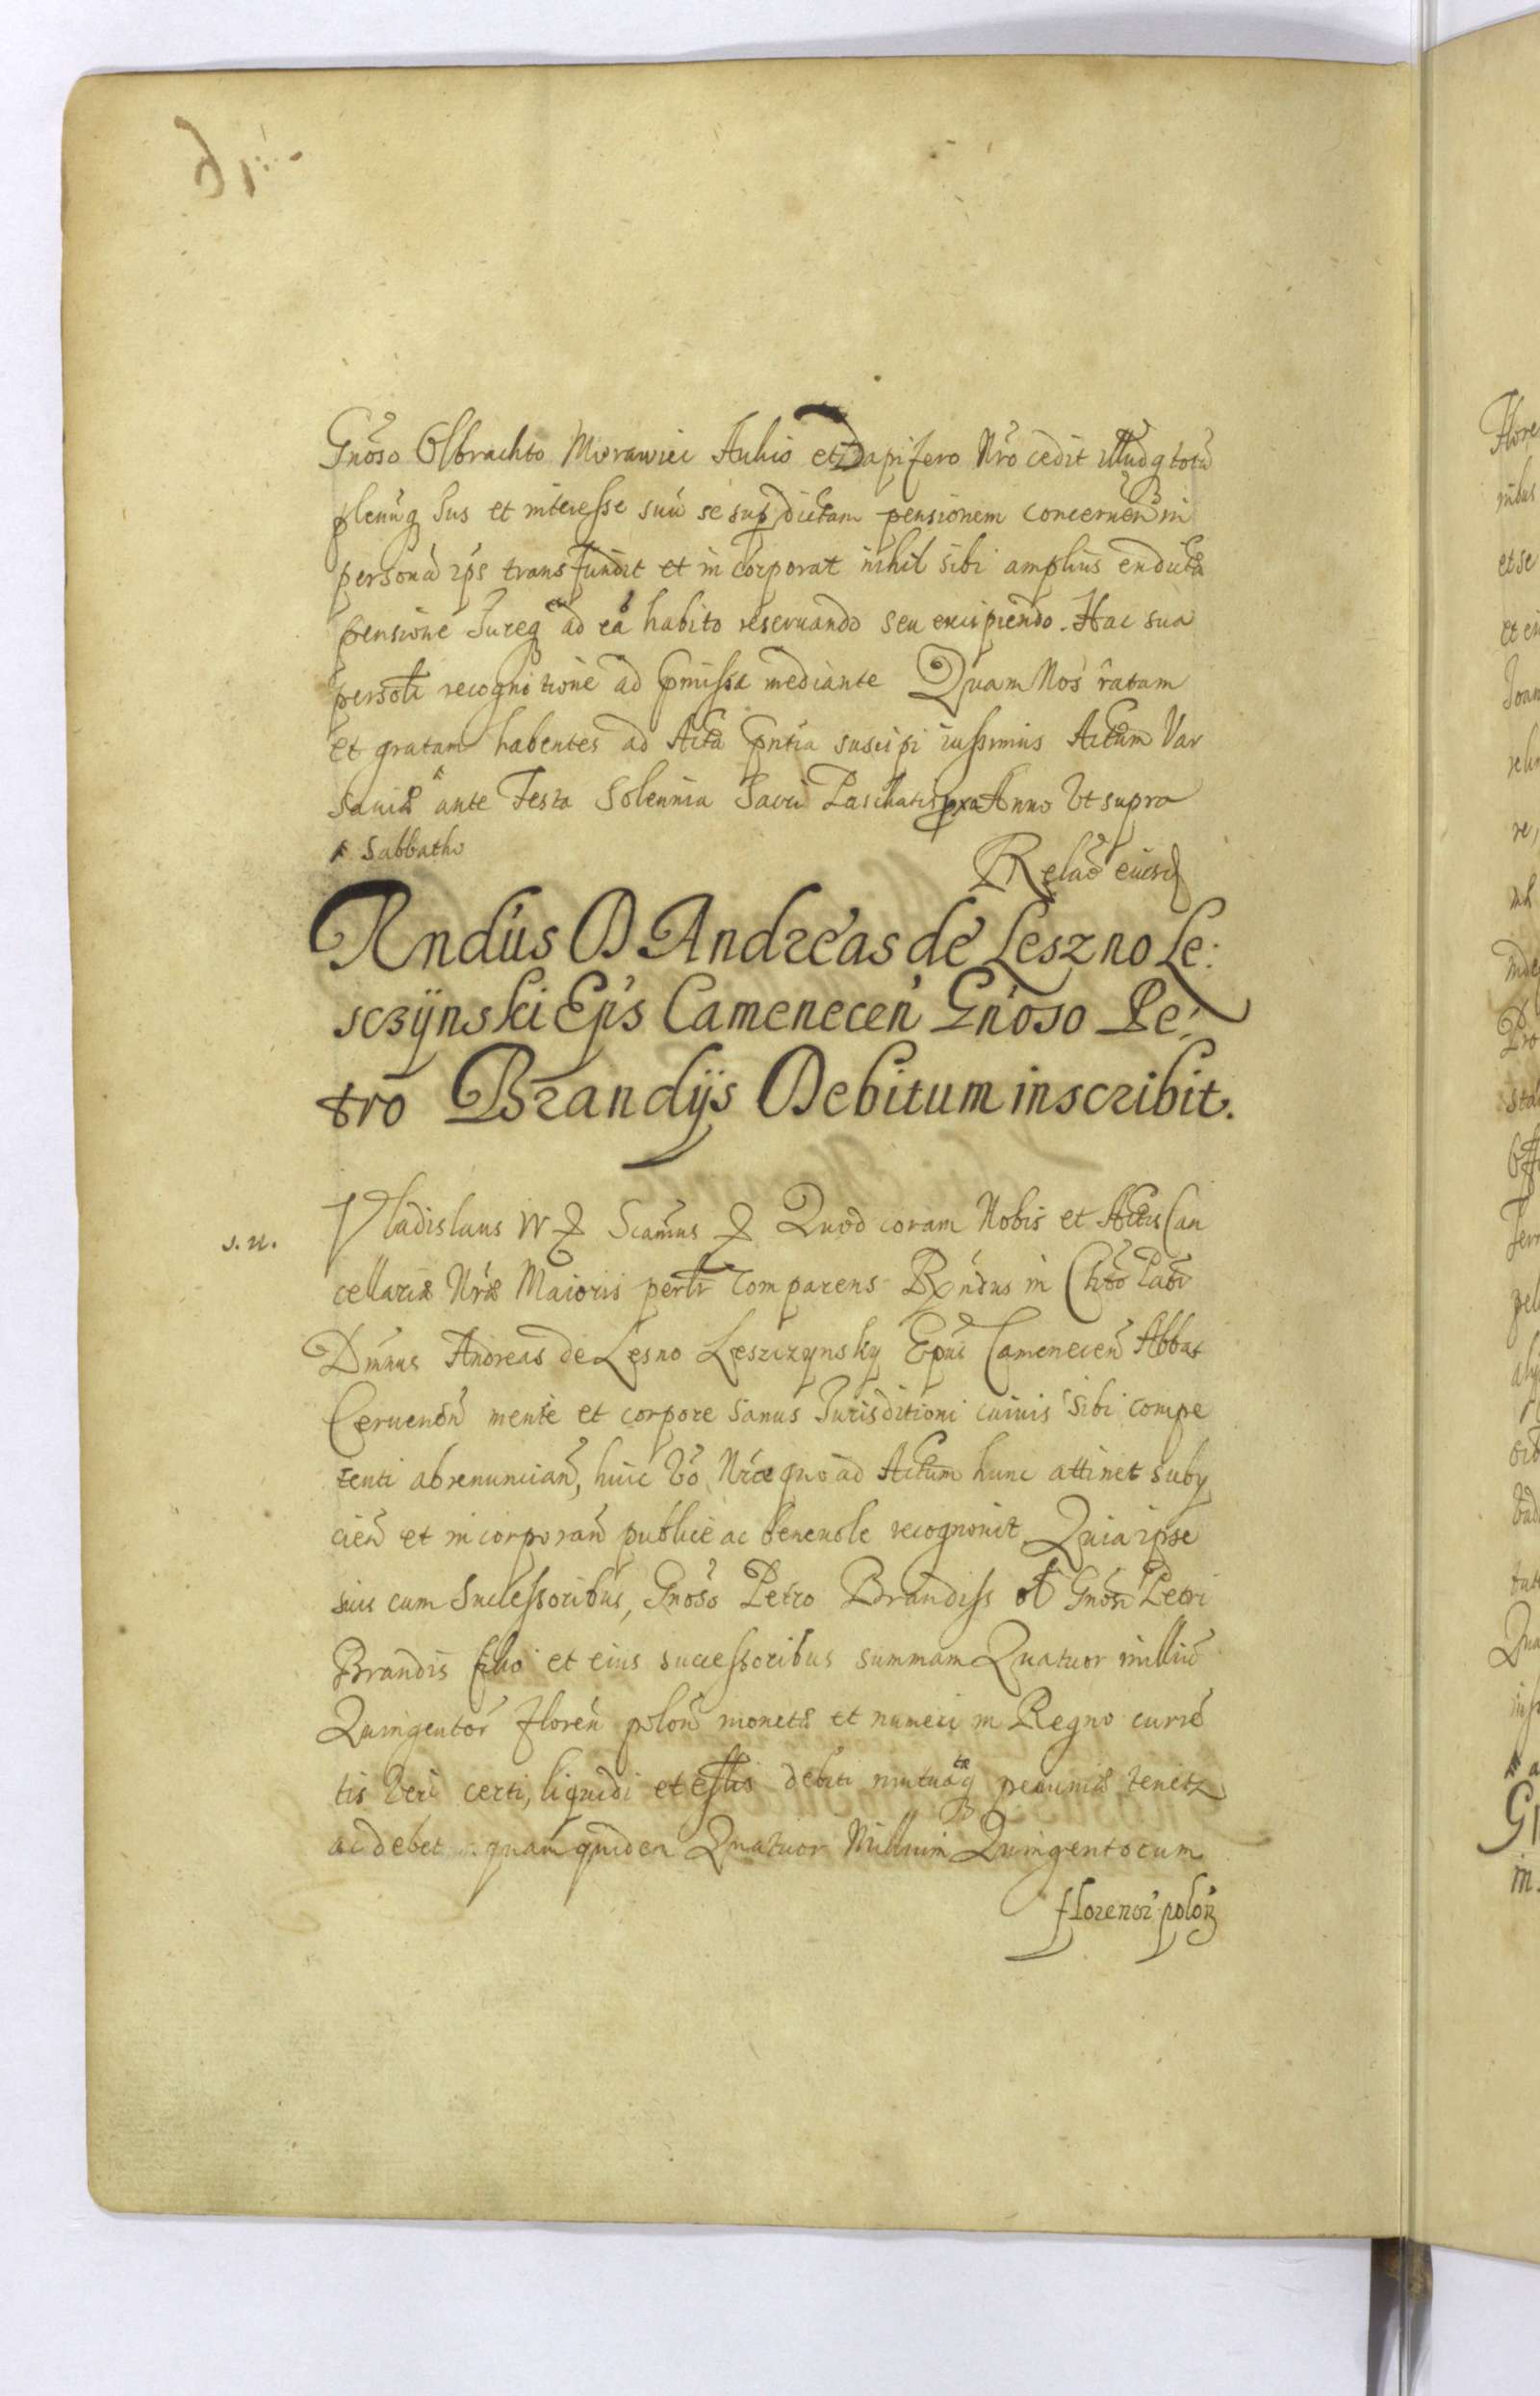 Gnoso Olbrachto Morawiec Aulico et Dapifero Nro cedit illudq totu
plenuq Jus et interesse suu se sup dictam pensionem concernen in
persona ips transfundit et incorporat nihil sibi amplius en dicta
pensione Jureq ad ea habito reseruando seu excipiendo. Hac sua
persoli recognitione ad pmissa mediante Quam Nos ratam
et gratam habentes ad Acta pntia suscipi iussimus Actum Var
sauiæ ante Festa Solennia Sacri Paschatis pxa Anno Vt supra
Sabbatho
Relao eiusd
Rndus D. Andreas de Leszno Le:
sczÿnski Eps Camenecen Gnoso Pe:
tro Brandÿs Debitum inscribit.
s. n.
Vladislaus IV Scamus Quod coram Nobis et Actis Can
cellariæ Nræ Maioris perlr comparens Rndus in Chro Patr
Dmnus Andreas de Lesno Leszczynsky Epus Camenecen Abbas
Ceruenen mente et corpore sanus Jurisditioni cuiuis sibi compe
tenti abrenuncian, huic Vo Nræ quo ad Actum hunc attinet suby
cien et incorporan publice ac beneuole recognouit Quia ipse
suis cum Successoribus, Gnoso Petro Brandiss Gnosi Petri
Brandis filio et eius successoribus summam Quatuor milliu
Quingentor floren polon monetæ et numeri in Regno curre
tis Veri certi, liquidi et debiti mutuatæq pecuniæ tenetr
ac debet quam quidem Quatuor Millium Quingentorum
florenor polon